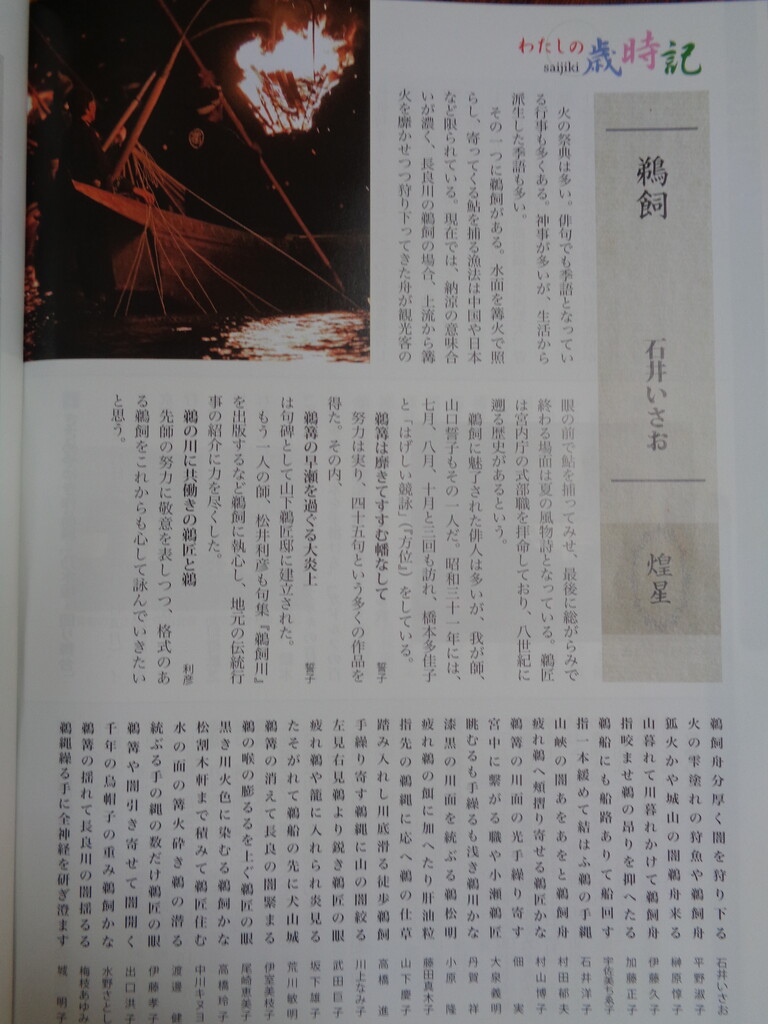 わたしの
歳時記
saijiki
鵜飼
石井いさお
煌星
火の祭典は多い。俳句でも季語となってい
る行事も多くある。神事が多いが、生活から
派生した季語も多い。
その一つに鵜飼がある。水面を篝火で照
らし、寄ってくる鮎を捕る漁法は中国や日本
など限られている。現在では、納涼の意味合
いが濃く、長良川の鵜飼の場合、上流から篝
火を靡かせつつ狩り下ってきた舟が観光客の
眼の前で鮎を捕ってみせ、最後に総がらみで
終わる場面は夏の風物詩となっている。鵜匠
は宮内庁の式部職を拝命しており、八世紀に
遡る歴史があるという。
鵜飼に魅了された俳人は多いが、我が師、
山口誓子もその一人だ。昭和三十一年には、
七月、八月、十月と三回も訪れ、橋本多佳子
と「はげしい競詠」(『方位』)をしている。
鵜篝は靡きてすすむ幡なして 誓子
努力は実り、四十五句という多くの作品を
得た。その内、
鵜篝の早瀬を過ぐる大炎上 誓子
は句碑として山下鵜匠邸に建立された。
もう一人の師、松井利彦も句集『鵜飼川』
を出版するなど鵜飼に執心し、地元の伝統行
事の紹介に力を尽くした。
鵜の川に共働きの鵜匠と鵜 利彦
先師の努力に敬意を表しつつ、格式のあ
る鵜飼をこれからも心して詠んでいきたい
と思う。
鵜飼舟分厚く闇を狩り下る 石井いさお
火の雫塗れの狩魚や鵜飼舟 平野淑子
鉱火かや城山の闇鵜舟来る 榊原惇子
山暮れて川暮れかけて鵜飼舟 伊藤久子
指咬ませ鵜の昂りを抑へたる 加藤正子
鵜船にも船路ありて船回す 宇佐美ちゑ子
指一本緩めて結はふ鵜の手縄 石井洋子
山峡の闇あをあをと鵜飼舟 村田郁夫
疲れ鵜へ頬摺り寄せる鵜匠かな 村山博子
鵜篝の川面の光手繰り寄す 佃 実
宮中に繋がる職や小瀬鵜匠 大泉義明
眺むるも手繰るも浅き鵜川かな 丹賀 祥
漆黒の川面を統ぶる鵜松明 小原 隆
疲れ鵜の餌に加へたり肝油粒 藤田真木子
指先の鵜縄に応へ鵜の仕草 山下慶子
踏み入れし川底滑る徒歩鵜飼 高橋 進
手繰り寄す鵜縄に山の闇絞る 川上なみ子
左見右見鵜より鋭き鵜匠の眼 武田巨子
疲れ鵜や籠に入れられ炎見る 坂下雄子
たそがれて鵜船の先に犬山城 荒川敏明
鵜篝の消えて長良の闇緊まる 伊室美枝子
鵜の喉の膨るるを上ぐ鵜匠の眼 尾崎恵美子
黒き川火色に染むる鵜飼かな 高橋玲子
松割木軒まで積みて鵜匠住む 中川キヌヨ
水の面の篝火砕き鵜の潜る 渡邊 健
統ぶる手の縄の数だけ鵜匠の眼 伊藤孝子
鵜篝や闇引き寄せて闇開く 出口洪子
千年の烏帽子の重み鵜飼かな 水野さとし
鵜篝の揺れて長良川の闇揺るる 梅枝あゆみ
鵜縄繰る手に全神経を研ぎ澄ます 城 明子